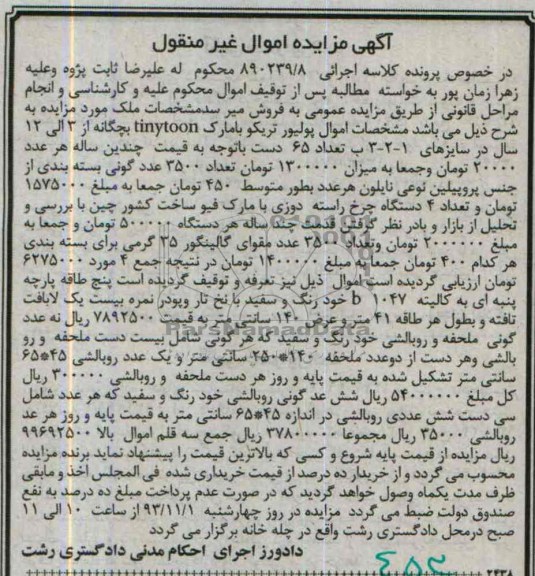 آگهی مزایده اموال غیر منقول
در خصوص پرونده کلاسه اجرائی ۸۹۰۲۳۹/۸ محکوم له علیرضا ثابت پژوه وعلیه
زهرا زمان پور به خواسته مطالبه پس از توقیف اموال محکوم علیه و کارشناسی و انجام
مراحل قانونی از طریق مزایده عمومی به فروش میر سدمشخصات ملک مورد مزایده به
شرح ذیل می باشد مشخصات اموال پولیور تریکو بامارک tinytoon بچگانه از ۳ الی ۱۲
سال در سایزهای ۱-۲-۳ ب تعداد ۶۵ دست باتوجه به قیمت چندین ساله هر عدد
۲۰۰۰۰ تومان وجمعا به میزان ۱۳۰۰۰۰۰ تومان تعداد ۳۵۰۰ عدد گونی بسته بندی از
جنس پروپیلین نوعی نایلون هرعدد بطور متوسط ۴۵۰ تومان جمعا به مبلغ ۱۵۷۵۰۰۰
تومان و تعداد ۴ دستگاه چرخ راسته دوزی با مارک فیو ساخت کشور چین با بررسی و
تحلیل از بازار و بادر نظر گرفتن قدمت چند ساله هر دستگاه ۵۰۰۰۰۰ تومان و جمعا به
مبلغ ۲۰۰۰۰۰۰ تومان وتعداد ۳۵۰۰ عدد مقوای گالینگور ۳۵ گرمی برای بسته بندی
هر کدام ۴۰۰ تومان جمعا به مبلغ ۱۴۰۰۰۰۰ تومان در نتیجه جمع ۴ مورد ۶۲۷۵۰۰۰
تومان ارزیابی گردیده است اموال ذیل نیز تعرفه و توقیف گردیده است پنج طاقه پارچه
پنبه ای به کالیته b ۱۰۴۷ خود رنگ و سفید با نخ تار وپودر نمره بیست یک لابافت
تافته و بطول هر طاقه ۴۱ متر و عرض ۱۴۰ سانتی متر به قیمت ۷۸۹۲۵۰۰ ریال نه عدد
گونی ملحفه و روبالشی خود رنگ و سفید که هر گونی شامل بیست دست ملحفه و رو
بالشی وهر دست از دوعدد ملحفه ۱۴۰*۲۵۰ سانتی متر و یک عدد روبالشی ۴۵*۶۵
سانتی متر تشکیل شده به قیمت پایه و روز هر دست ملحفه و روبالشی ۳۰۰۰۰۰ ریال
کل مبلغ ۵۴۰۰۰۰۰۰ ریال شش عد گونی روبالشی خود رنگ و سفید که هر عدد شامل
سی دست شش عددی روبالشی در اندازه ۴۵*۶۵ سانتی متر به قیمت پایه و روز هر عد
روبالشی ۳۵۰۰۰ ریال مجموعا ۳۷۸۰۰۰۰۰ ریال جمع سه قلم اموال بالا ۹۹۶۹۲۵۰۰
ریال مزایده از قیمت پایه شروع و کسی که بالاترین قیمت را پیشنهاد نماید برنده مزایده
محسوب می گردد و از خریدار ده درصد از قیمت خریداری شده فی المجلس اخذ و مابقی
ظرف مدت یکماه وصول خواهد گردید که در صورت عدم پرداخت مبلغ ده درصد به نفع
صندوق دولت ضبط می گردد مزایده در روز چهارشنبه ۹۳/۱۱/۱ از ساعت ۱۰ الی ۱۱
صبح درمحل دادگستری رشت واقع در چله خانه برگزار می گردد
دادورز اجرای احکام مدنی دادگستری رشت
۲۴۳۸
۴۵۳
ParsNamadData